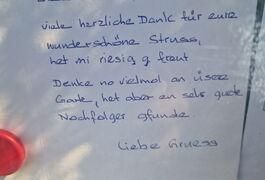 viele herzliche Dank für eure
wunderschöne Struss,
het mi riesig g freut
Denke no vielmol an üsere
Garte, het aber en sehr guete
Nochfolger gfunde.
Liebe Gruess